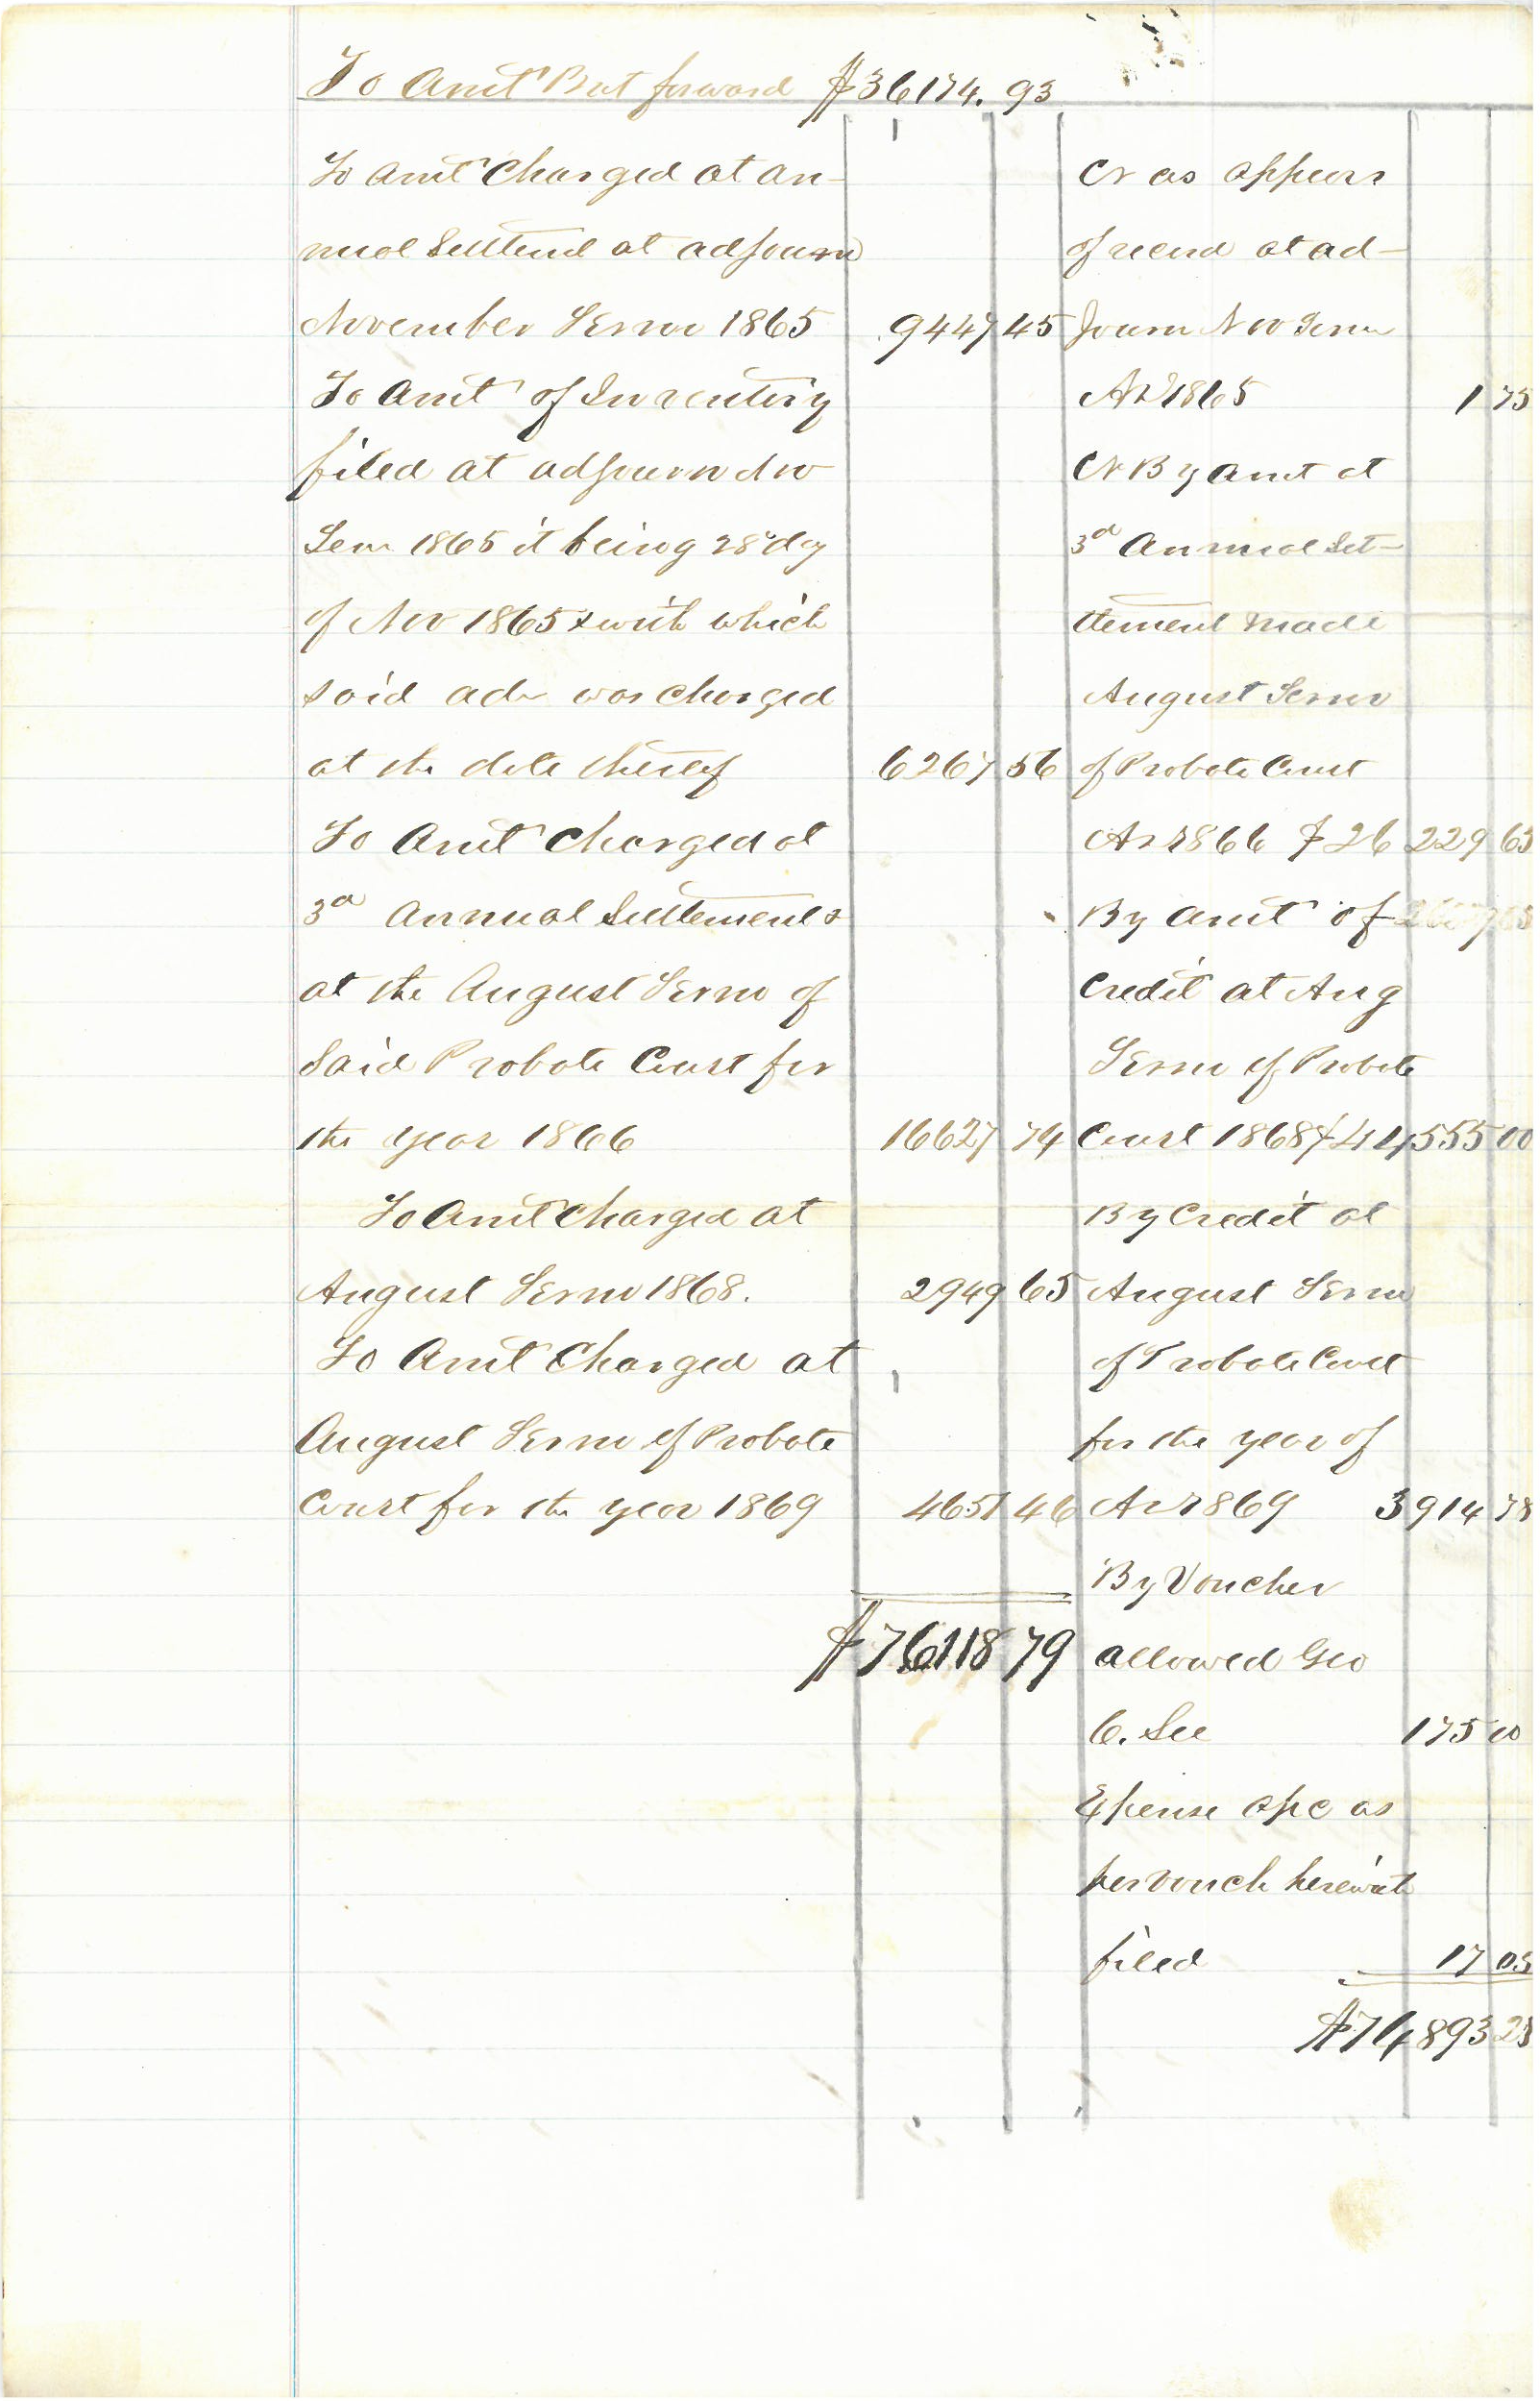 To Amt Brot forward $36174.93
To Amt Charged at an-
nual Settlemt at adjourn
November Term 1865 9447 45
To Amt of Inventory
filed at adjourn Nov
Term 1865 it being 28 day
of Nov 1865 & with which
said adr was charged
at the date thereof 6267 56
To Amt Charged at
3d Annual Settlement &
at the August Term of
Said Probate Court for
the year 1866 16627 74
To Amt Charged at
August Term 1868. 2949 65
To Amt Charged at
August Term of Probate
Court for the year 1869 4651 46
$76118 79
Cr as appears
of record at ad-
journ Nov Term
AD 1865 1 75
Cr By Amt at
3d Annual Set-
tlement made
August Term
of Probate Court
AD 1866 $26 229 65
By Amt of
Credit at Aug
Term of Probate
Court 1868 $44 555 00
By Credit at
August Term
of Probate Court
for the year of
AD 1869 3914 78
By Voucher
allowed Geo
C. See 175 00
Expense apc as
per vouch herewith
filed 17 05
$74893 23